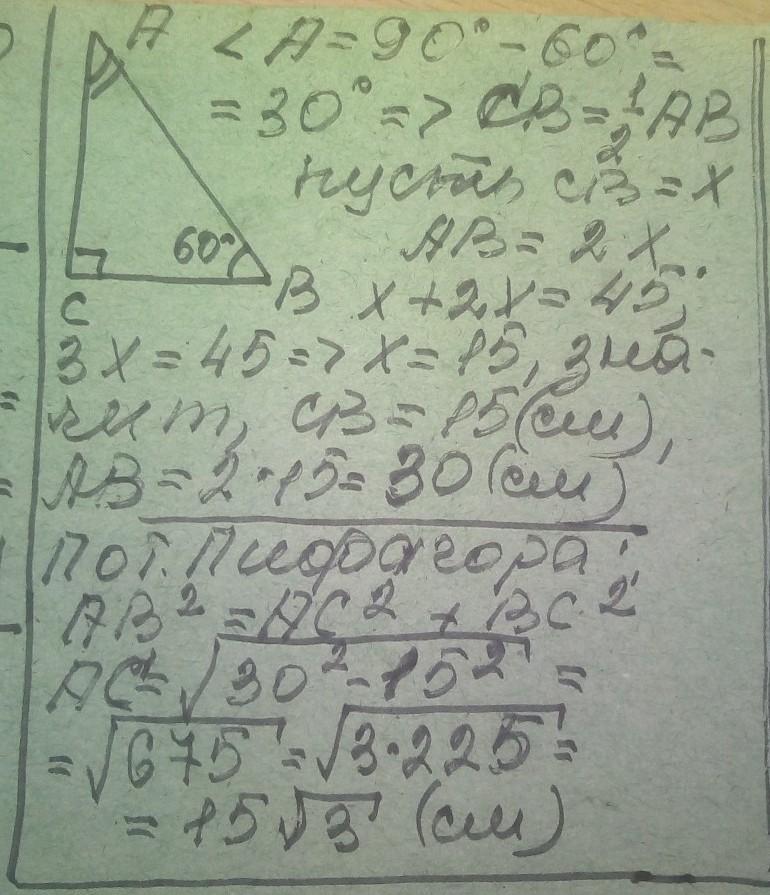 A <A = 90° - 60° =
= 30° => CB = 1/2 AB
пусть CB = x
60° AB = 2x
C B x + 2x = 45;
3x = 45 => x = 15, зна-
чит, CB = 15 (см),
AB = 2·15 = 30 (см)
По т. Пифагора:
AB² = AC² + BC²
AC = √30² - 15² =
= √675 = √3·225 =
= 15√3 (см)